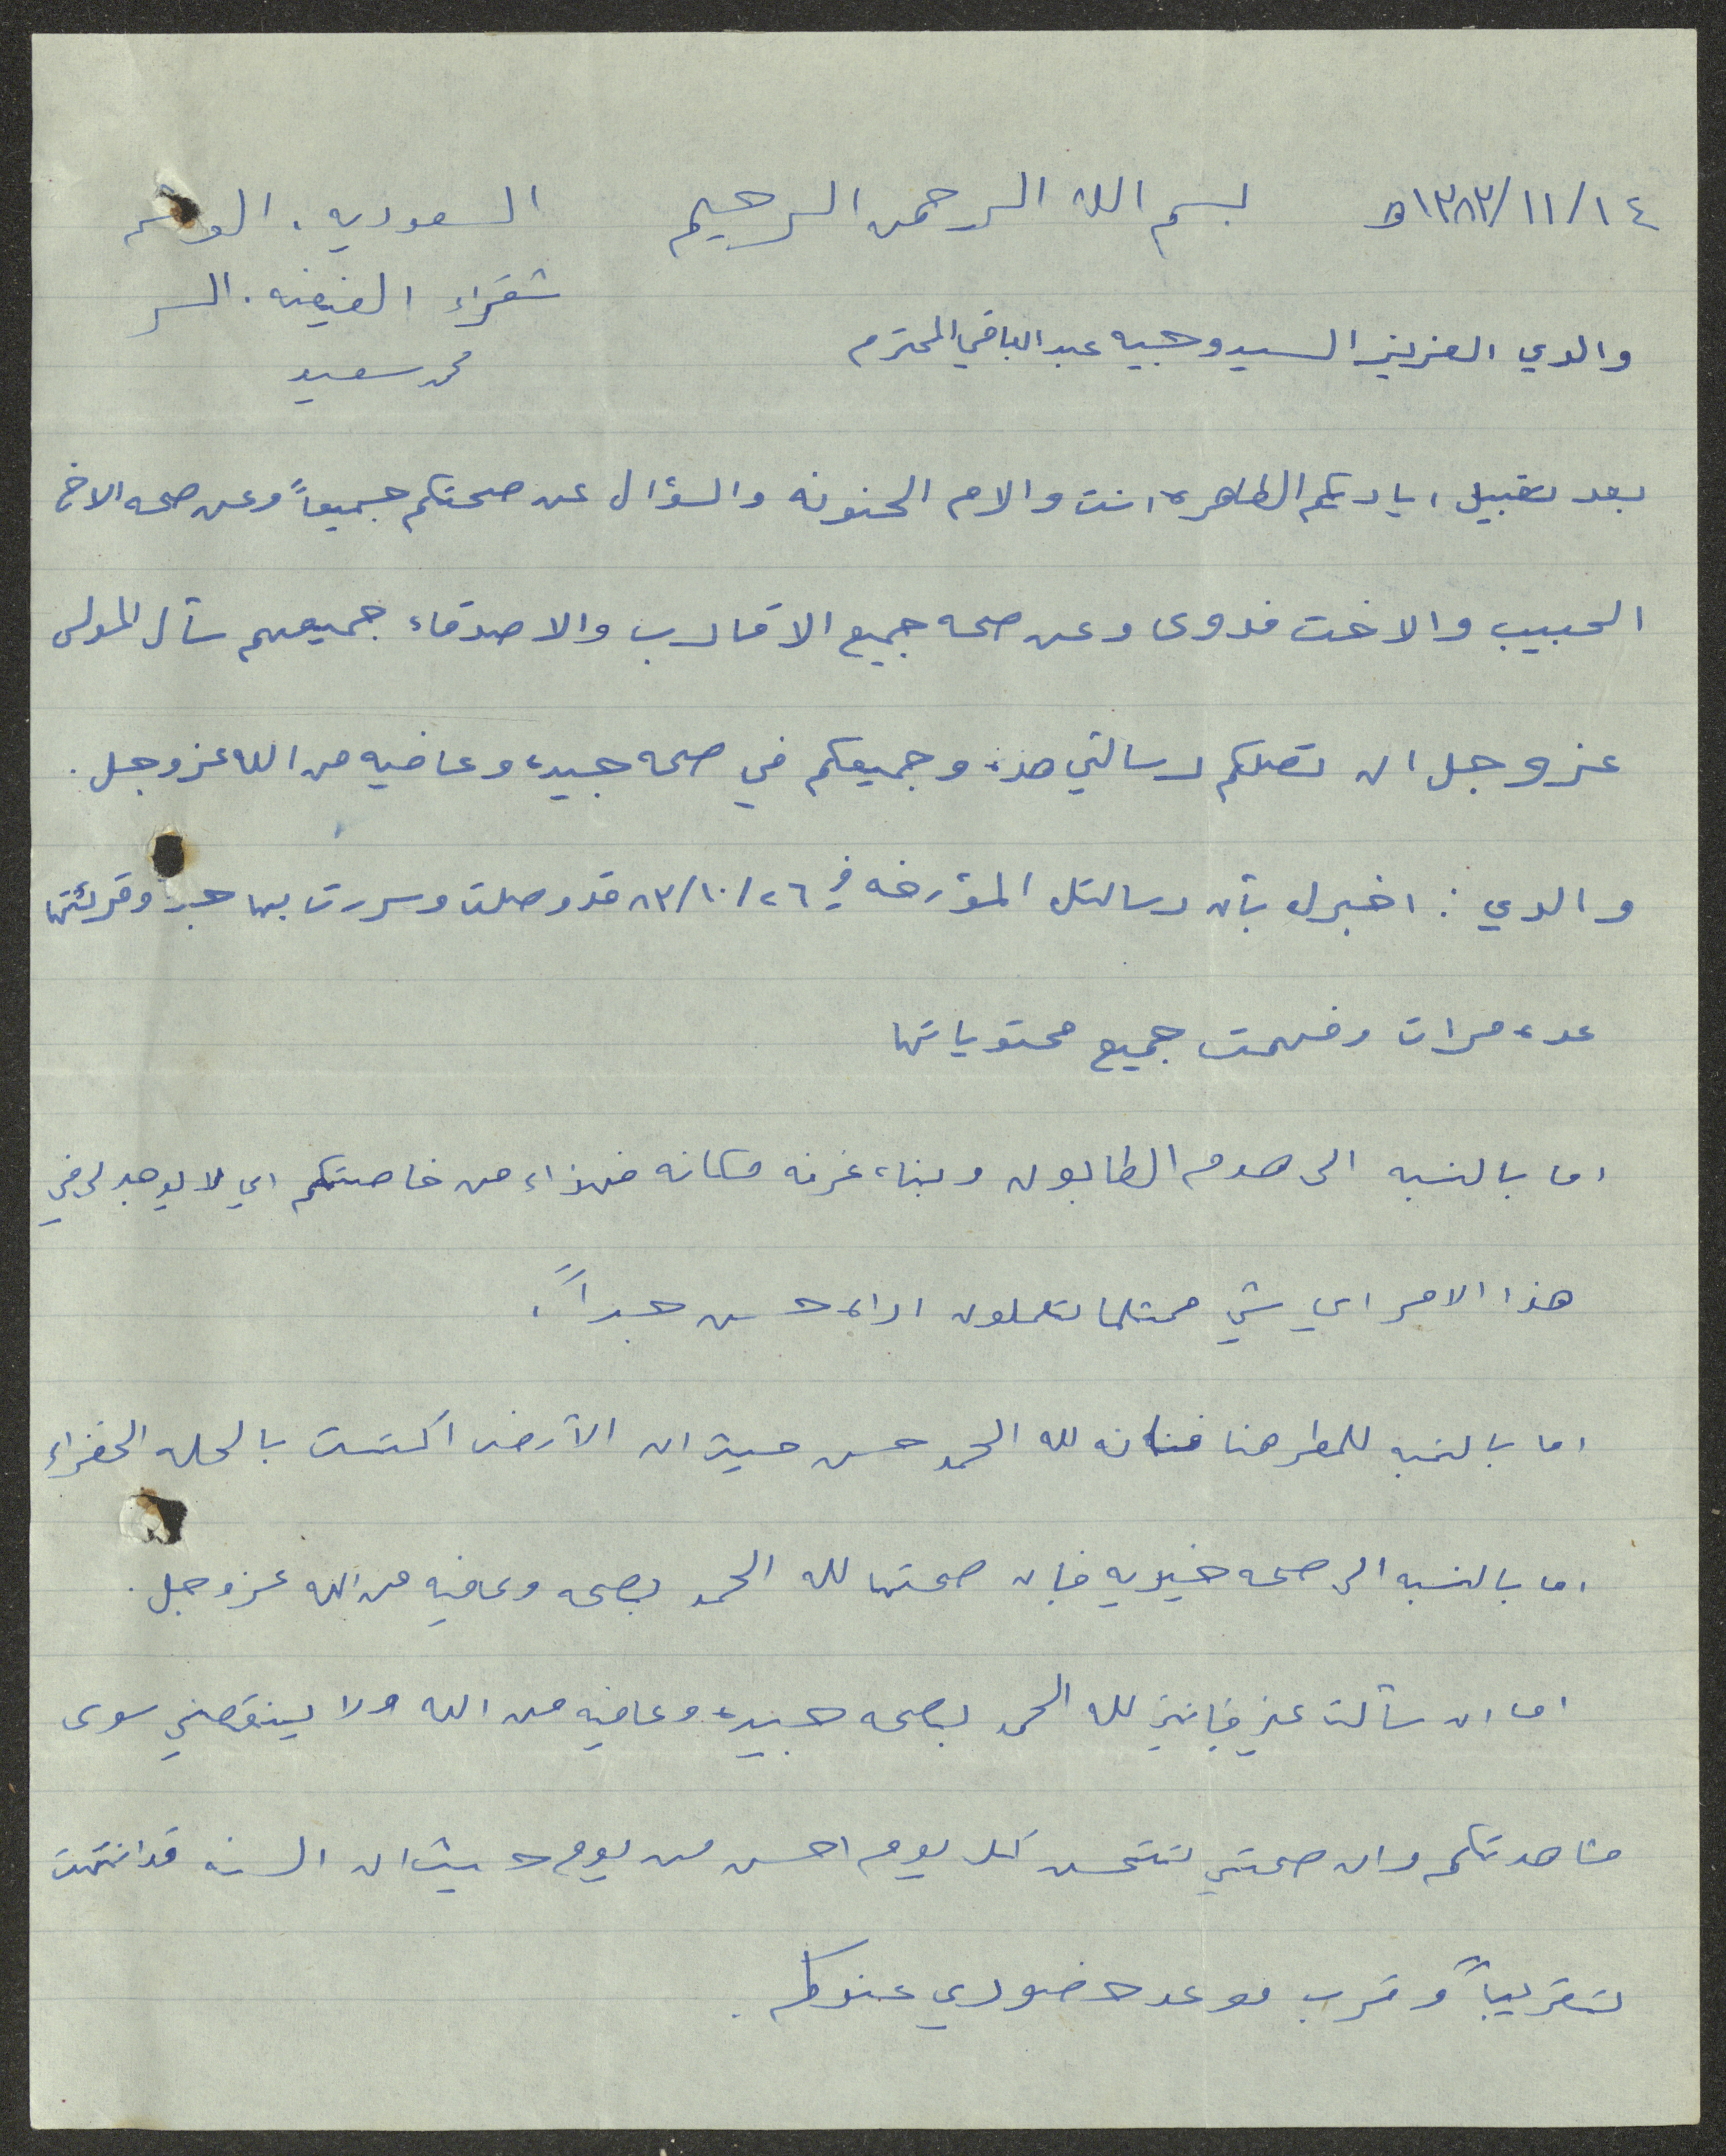 ١٤/١١/١٣٨٣ه بسم الله الرحمن الرحيم السعوديه . الوشم
شقراء الفيضه . السر
والدي العزيز السيد وجيه عبد الباقي المحترم
محمد سعيد
بعد تقبيل اياديكم الطاهره انت والام الحنونه والسؤال عن صحتكم جميعاً وعن صحه الاخ
الحبيب والاخت فدوى وعن صحه جميع الاقارب والاصدقاء جميعهم سأل المولى
عزوجل ان تصلكم رسالتي هذه وجميعكم في صحه جيده وعافيه من الله عزوجل .
والدي : اخبرك بأن رسالتك المؤرخه في ٢٦/١٠/٨٣ قد وصلت وسررت بها جداً وقرئتها
عده مرات وفهمت جميع محتوياتها
اما بالنسبه الى هدم الطابون وبناء غرفه مكانه فهذاء من خاصتكم اي لا يوجد لى في
هذا الامر اي شي فمثلما تعملون اراه حسن جداً .
اما بالنسبه للمطر هنا فانه لله الحمد حسن حيث ان الأرض اكتست بالحله الخضراء
اما بالنسبه الى صحه خيريه فإن صحتها لله الحمد بصحه وعافيه من الله عزوجل .
اما ان سألت عني فإنني لله الحمد بصحه جيده وعافيه من الله ولا ينقصني سوى
مشاهدتكم وان صحتي تتحسن كل يوم احسن من يوم حيث ان السنه قد انتهت
تقريباً وقرب موعد حضوري عندكم .